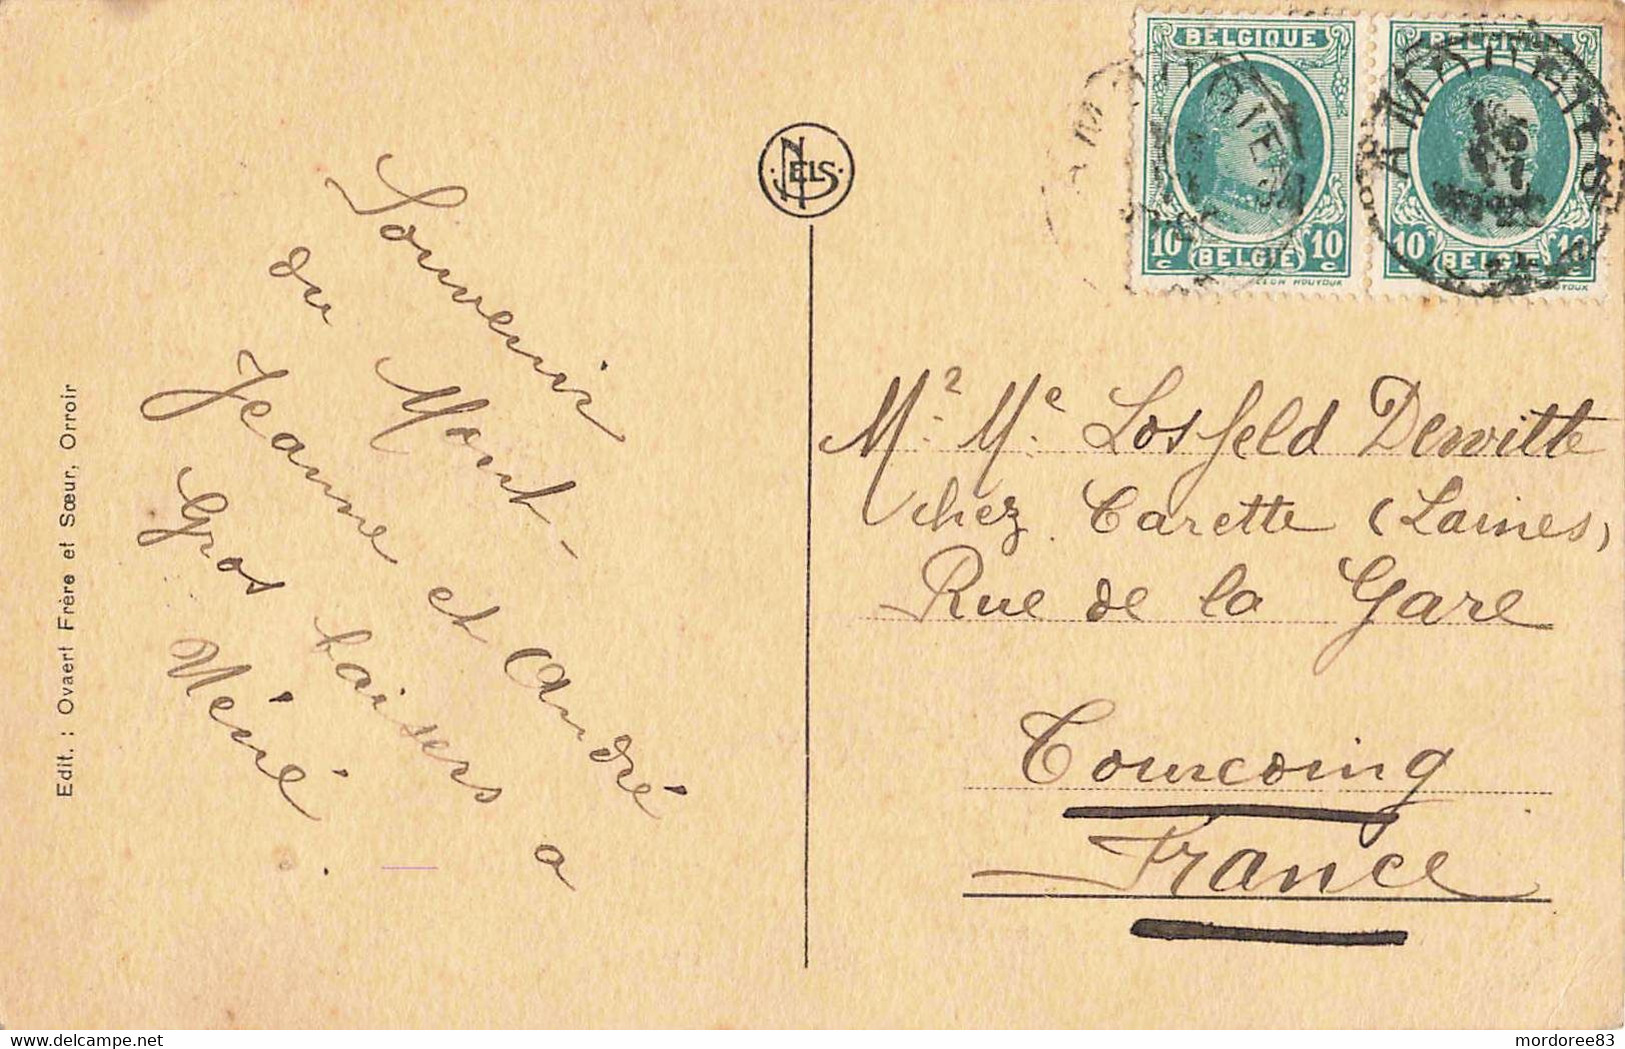 Souvenir
du Mont-
Jeanne et André
Gros baisers a
Néné.
Edit. : Ovaert Frère et Sœur, Orroir
NELS
BELGIQUE
10c 10c
BELGIË
BELGIQUE
10 10c
BELGIË
AMOUGIES
AMOUGIES
Mr. Me. Losfeld Dewitte
chez Carette (Laines)
Rue de la Gare
Tourcoing
France
mordoree83